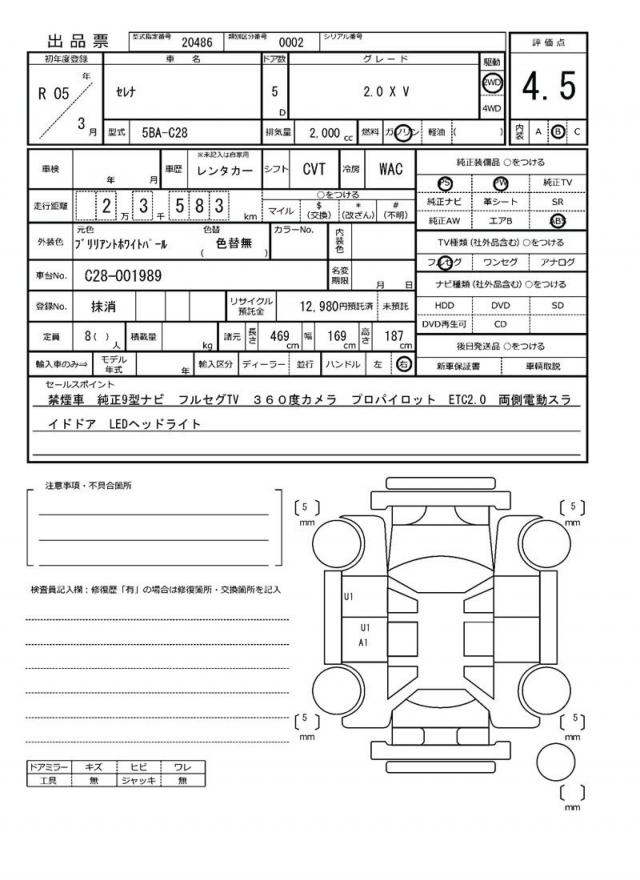 出品票 型式指定番号 20486 類別区分番号 0002 シリアル番号
初年度登録 車名 ドア数 グレード 駆動 評価点
R 05 年 3 月 セレナ 5 D 2.0 X V 2WD 4WD 4.5
型式 5BA-C28 排気量 2,000 cc 燃料 ガソリン 軽油 ( ) 内装 A B C
車検 年 月 車歴 ※未記入は自家用 レンタカー シフト CVT 冷房 WAC 純正装備品 ○をつける
PS PW 純正TV
走行距離 2 万 3 千 5 8 3 km ○をつける 純正ナビ 革シート SR
マイル $ (交換) * (改ざん) # (不明) 純正AW エアB ABS
外装色 元色 ブリリアントホワイトパール 色替 ( 色替無 ) カラーNo. 内装色 TV種類(社外品含む)○をつける
フルセグ ワンセグ アナログ
車台No. C28-001989 名変期限 月 日 ナビ種類(社外品含む)○をつける
登録No. 抹消 リサイクル預託金 12,980円預託済 未預託 HDD DVD SD
DVD再生可 CD
定員 8( ) 人 積載量 kg 諸元 長さ 469 cm 幅 169 cm 高さ 187 cm 後日発送品 ○をつける
輸入車のみ⇒ モデル年式 年 輸入区分 ディーラー 並行 ハンドル 左 右 新車保証書 車輌取説
セールスポイント
禁煙車 純正9型ナビ フルセグTV 360度カメラ プロパイロット ETC2.0 両側電動スラ
イドドア LEDヘッドライト
注意事項・不具合箇所
[ 5 ] mm [ 5 ] mm
検査員記入欄:修復歴「有」の場合は修復箇所・交換箇所を記入
U1
U1
A1
[ 5 ] mm [ 5 ] mm
ドアミラー キズ ヒビ ワレ
工具 無 ジャッキ 無
[ ] mm